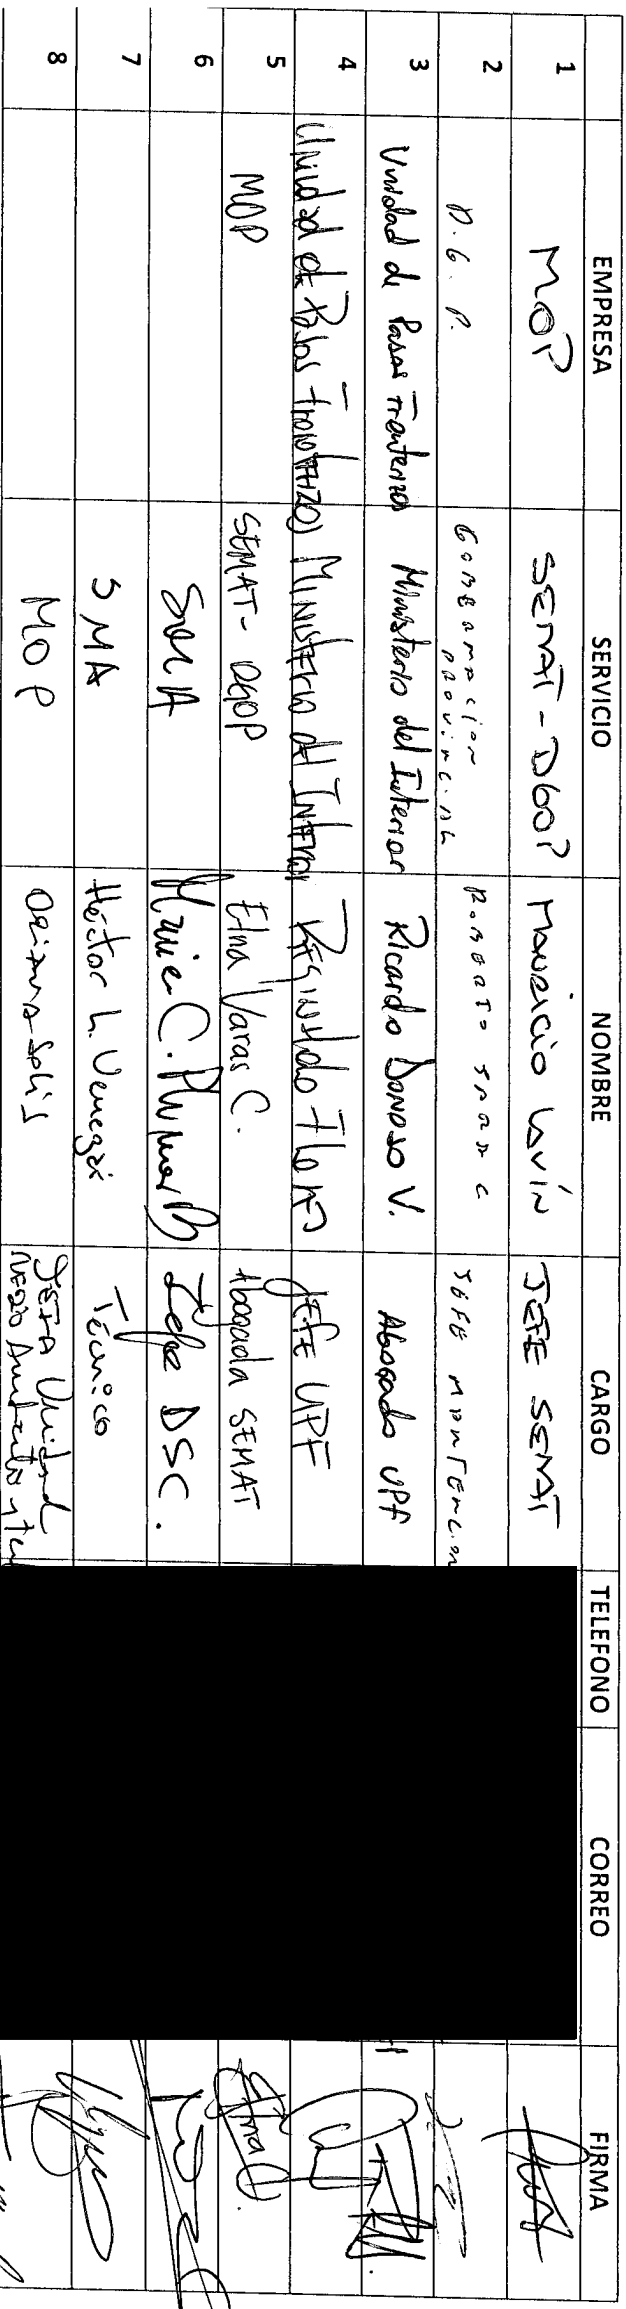 EMPRESA SERVICIO NOMBRE CARGO TELEFONO CORREO FIRMA
1 MOP SEMAT-DGOP MAURICIO LAVÍN JEFE SEMAT
2 D.G.P. GOBERNACION PROVINCIAL ROBERTO JEFE MANTENCION
3 Unidad de Pasos Fronterizos Ministerio del Interior Ricardo Donoso V. Abogado UPF
4 Unidad de Pasos Fronterizos Ministerio del Interior Reginaldo Flores JEFE UPF
5 MOP SEMAT-DGOP Etna Varas C. Abogada SEMAT
6 SMA C. Jefe DSC.
7 SMA Héctor L. Venegas Técnico
8 MOP Oriana Solís JEFA Unidad
Medio Ambiente y